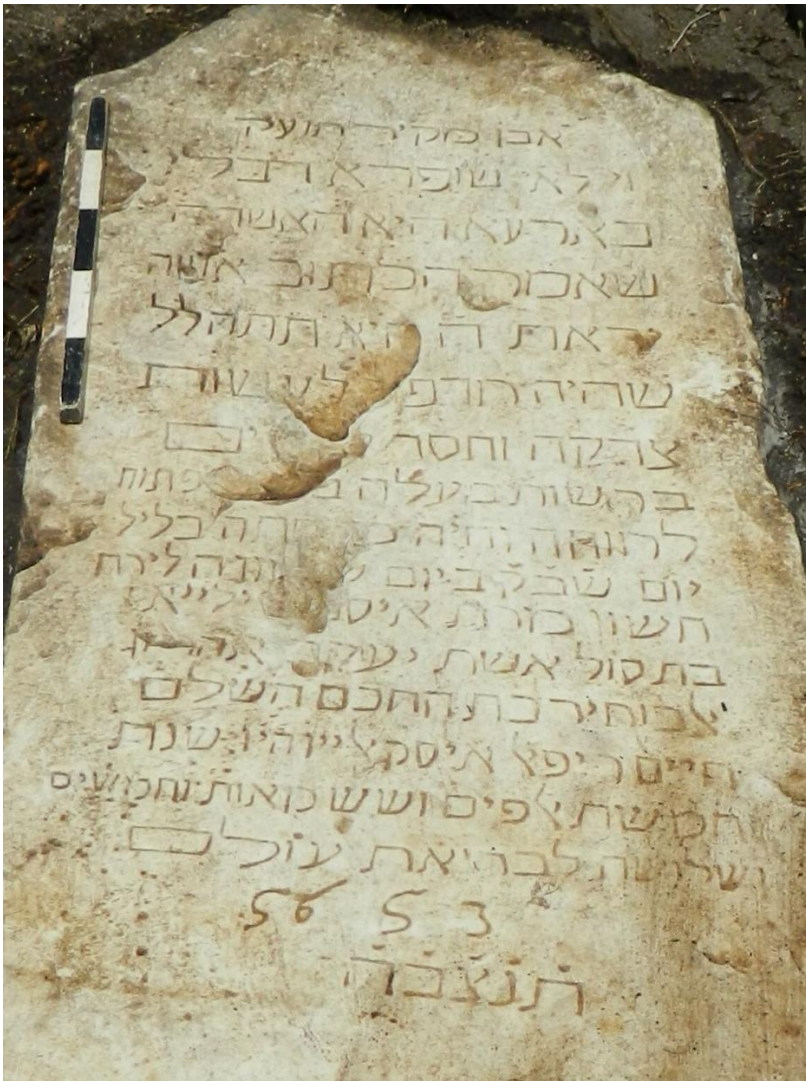 אבן מקיר תזעק
וי לאי שופרא דבלי
בארעא היא האשה
שאמר הכתוב אשה
יראת ה' היא תתהלל
שהיה רודפ לעשות
צדקה וחסד
בקשות בעלה פתוח
לרווחה והיה כליל
יום שבק ביום לירח
חשון מרת
בת סול אשת יעקב אהרון
אלבוחיר בת החכם השלם
חיים ריפאל איסקאליין הי"ו שנת
חמשת אלפים ושש מאות וחמשים
ושלושה לבריאת עולם
56 5 3
תנצבה